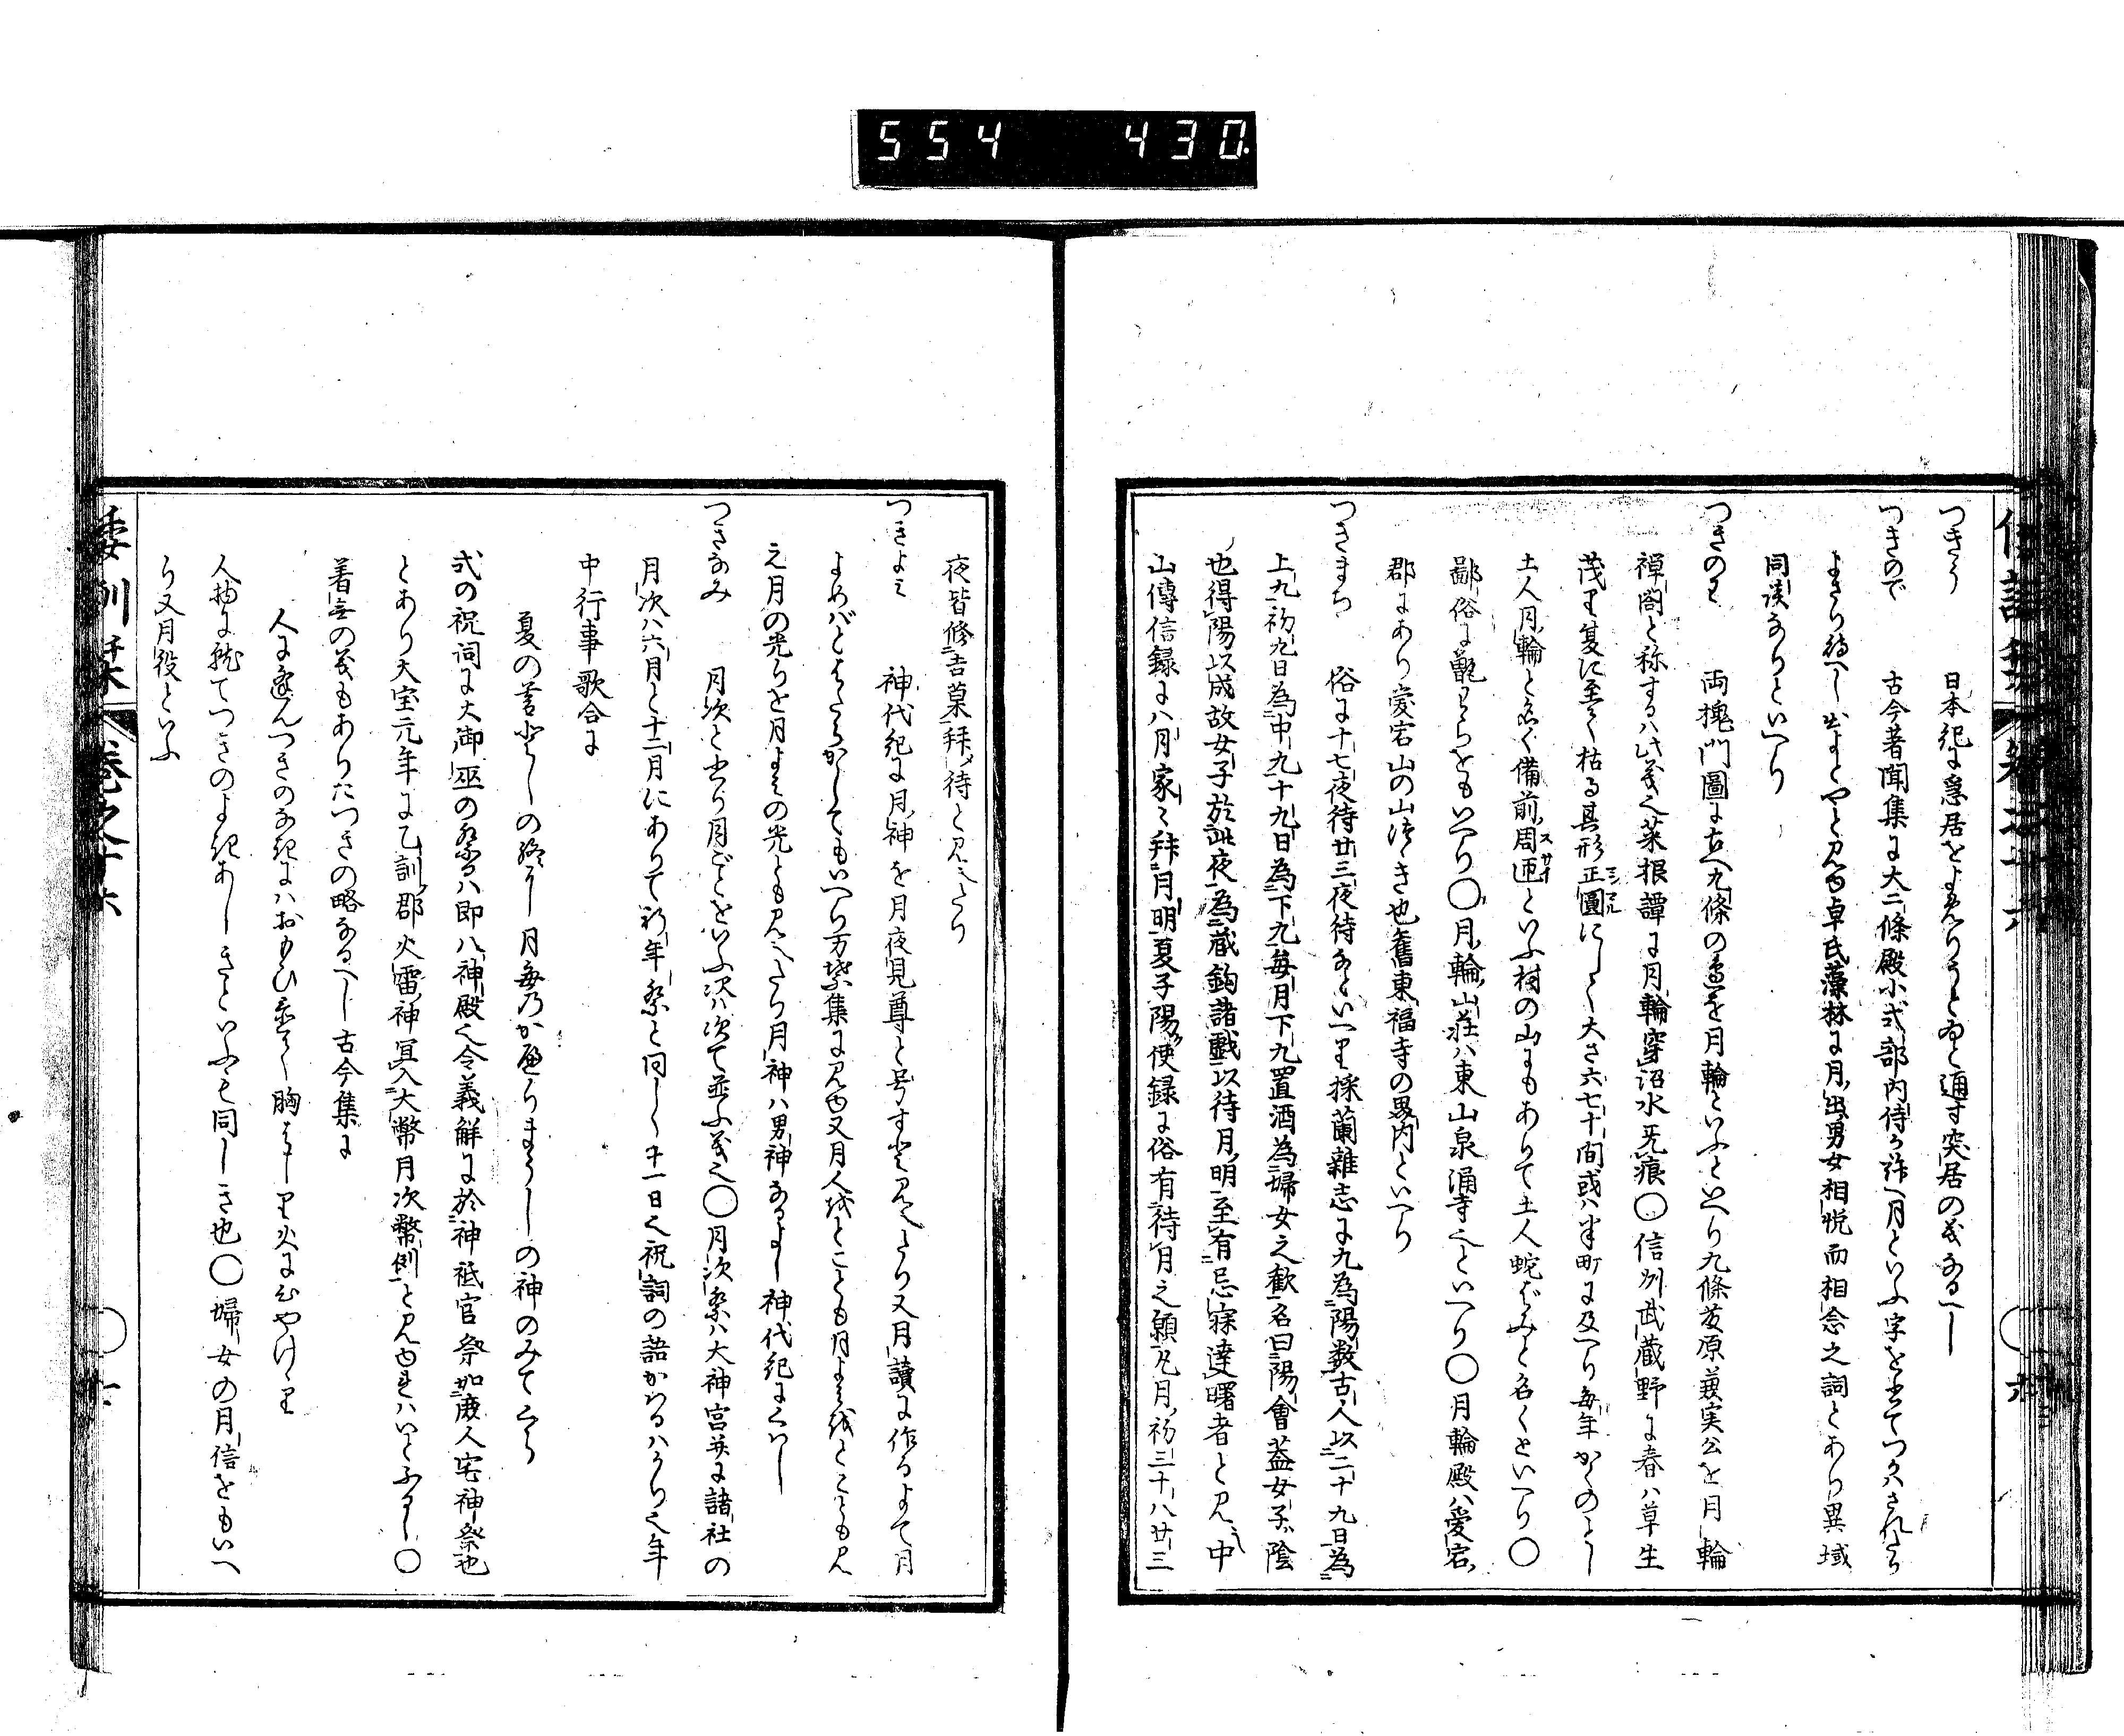 554 430
つきう 日本紀に急居をよめりうとゐと通す突居の義なるへし
つきので 古今著聞集に大二條殿小式部内侍か許へ月といふ字を書てつかはされたり
よさり待へし出よとやと見ゆ卓氏藻林に月出男女相悦而相念之詞とあり異域
同談なりといへり
つきのわ 両槐門圖に古へ九條の邊を月輪といふといへり九條兼実公を月輪
禅閤と称するハ此義也菜根譚に月輪穿沼水无痕〇信州武蔵野に春ハ草生
茂り夏に至て枯る其形正圓にして大さ六七十間或ハ半町に及へり毎年かくのことし
土人月輪と名く備前周匝といふ村の山にもありて土人蛇ばみと名くといへり〇
鄙俗に瓢わらをもいへり〇月輪山荘ハ東山泉涌寺也といへり〇月輪殿ハ愛宕
郡にあり愛宕山の山つゝき也舊東福寺の界内といへり
つきまち 俗に十七夜待廿三夜待なといへり採蘭雜志に九為陽数古人以二十九日為
上九初九日為中九十九日為下九毎月下九置酒為婦女之歡名曰陽會蓋女子陰
也得陽以成故女子於此夜為蔵鉤諸戯以待月明至有忘寐達曙者と見え中
山傳信録に八月家々拜月明夏子陽使録に俗有待月之願凡月初三十八廿三
夜皆修吉菓拜待と見えたり
つきよミ 神代紀に月神を月夜見尊と号す と見えたり又月讀に作るよて月
よめばとはたらかしてもいへり万葉集に見ゆ又月人をとことも月よみをとことも見
え月の光りを月よみの光とも見えたり月神ハ男神なるよし神代紀にくハし
つきなみ 月次と書り月ごとをいふ次ハ次て並ふ義也〇月次祭ハ大神宮并に諸社の
月次ハ六月と十二月にありて祈年祭と同しく十一日也祝詞の語かハるハかり也年
中行事歌合に
夏の暮 しの 月毎のか りまうしの神のみてくら
式の祝詞に大御巫の祭るハ即八神殿也令義解に於神祇官祭如庶人宅神祭也
とあり大宝元年に乙訓郡火雷神冥入大幣月次幣例と見ゆれハいとふるし〇
着無の義もありたつきの略なるへし古今集に
人に逢んつきのなきにハおもひ て胸はしり火に心やけゝり
人物に就てつきのよきあしきといふも同しき也〇婦女の月信をもいへ
り又月役といふ
倭訓栞 巻之十六